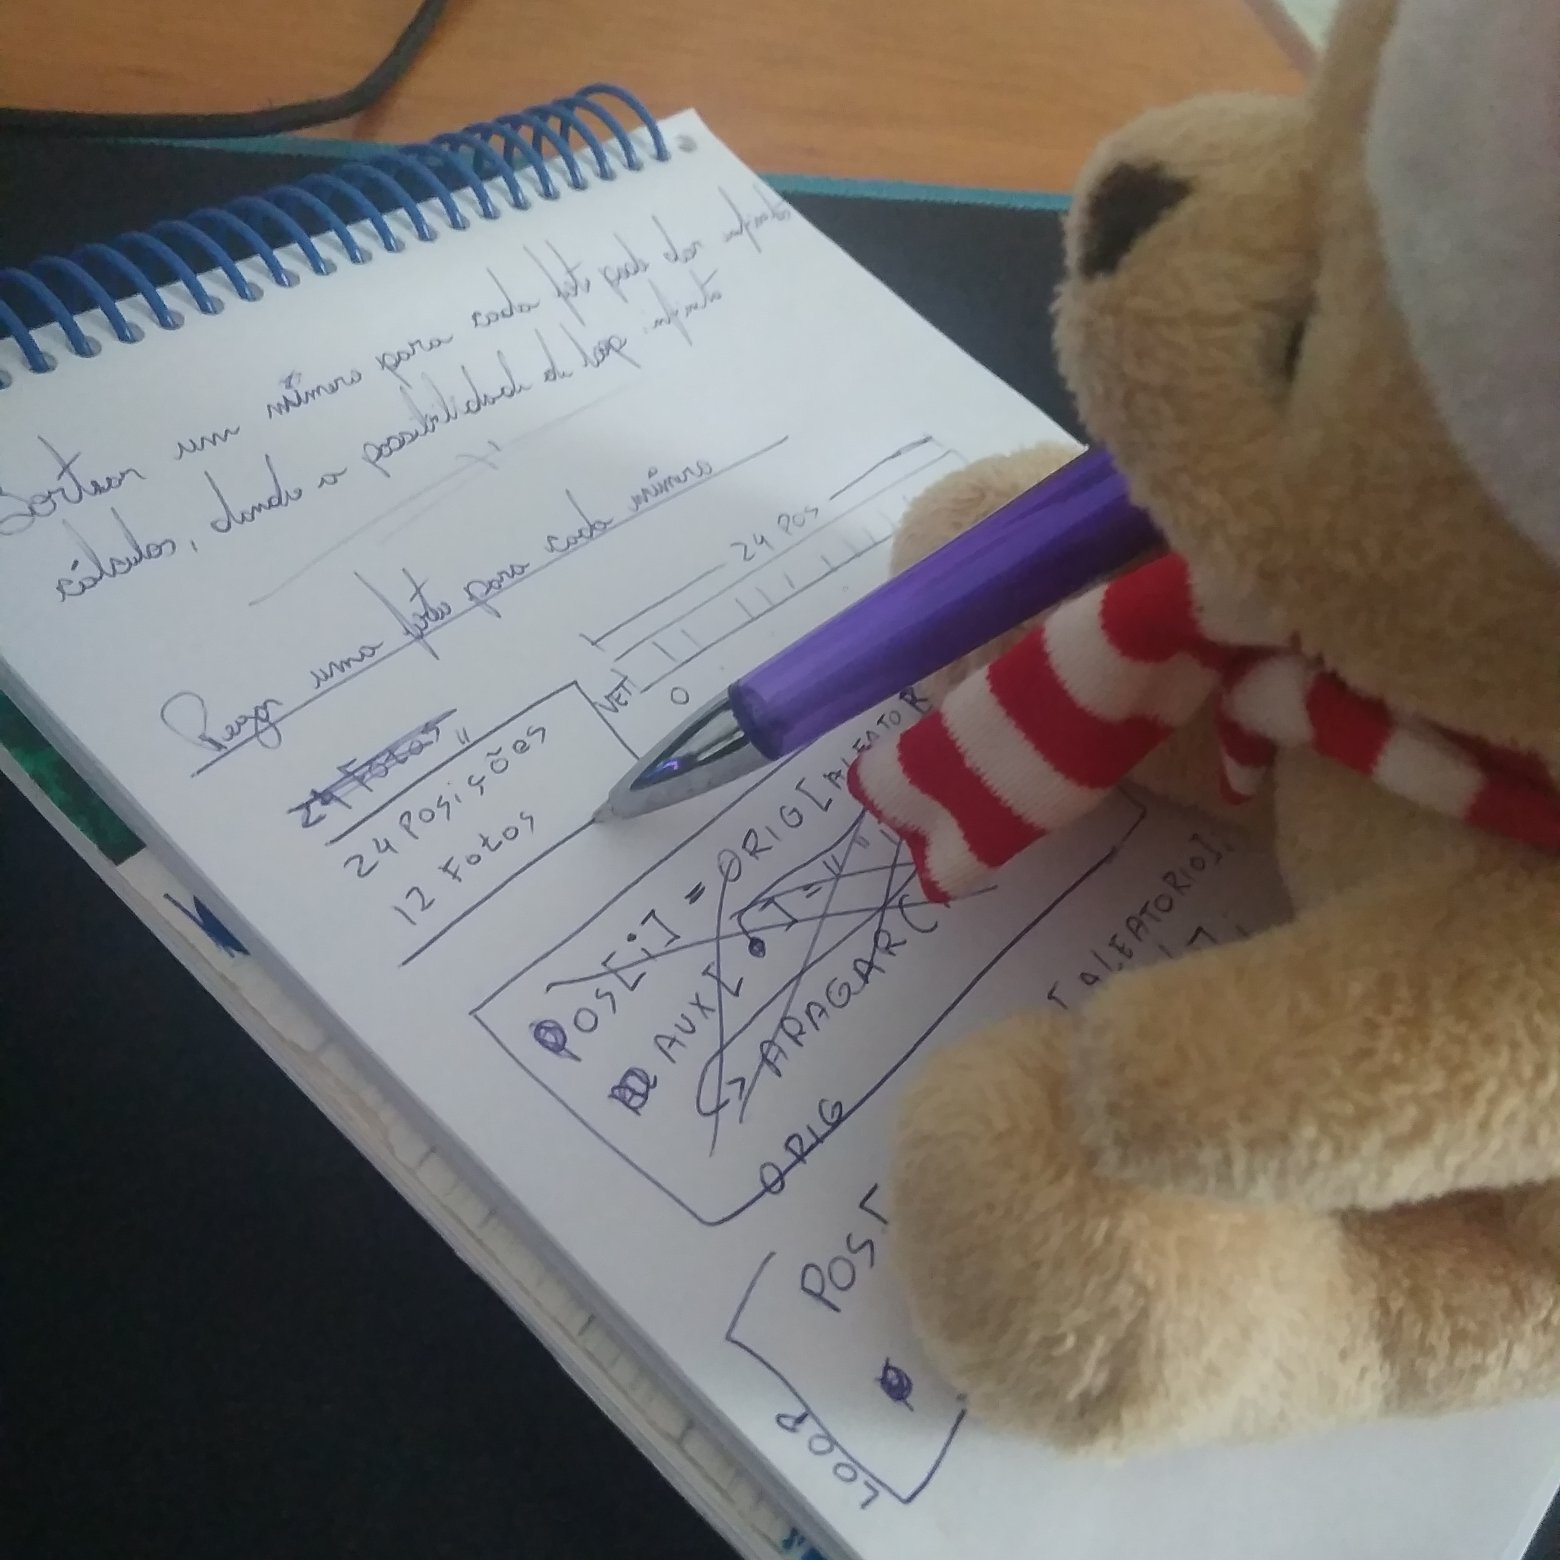 Sortear um número para cada foto pode dar muitos
cálculos, dando a possibilidade de loop infinito
Pegar uma foto para cada número
24 Pos
VET
0
24 Fotos
24 Posições
12 Fotos
Pos[i] = ORIG[ALEATOR
AUX[ ] = " "
APAGAR(
ORIG
[ALEATORIO];
POS[
LOOP